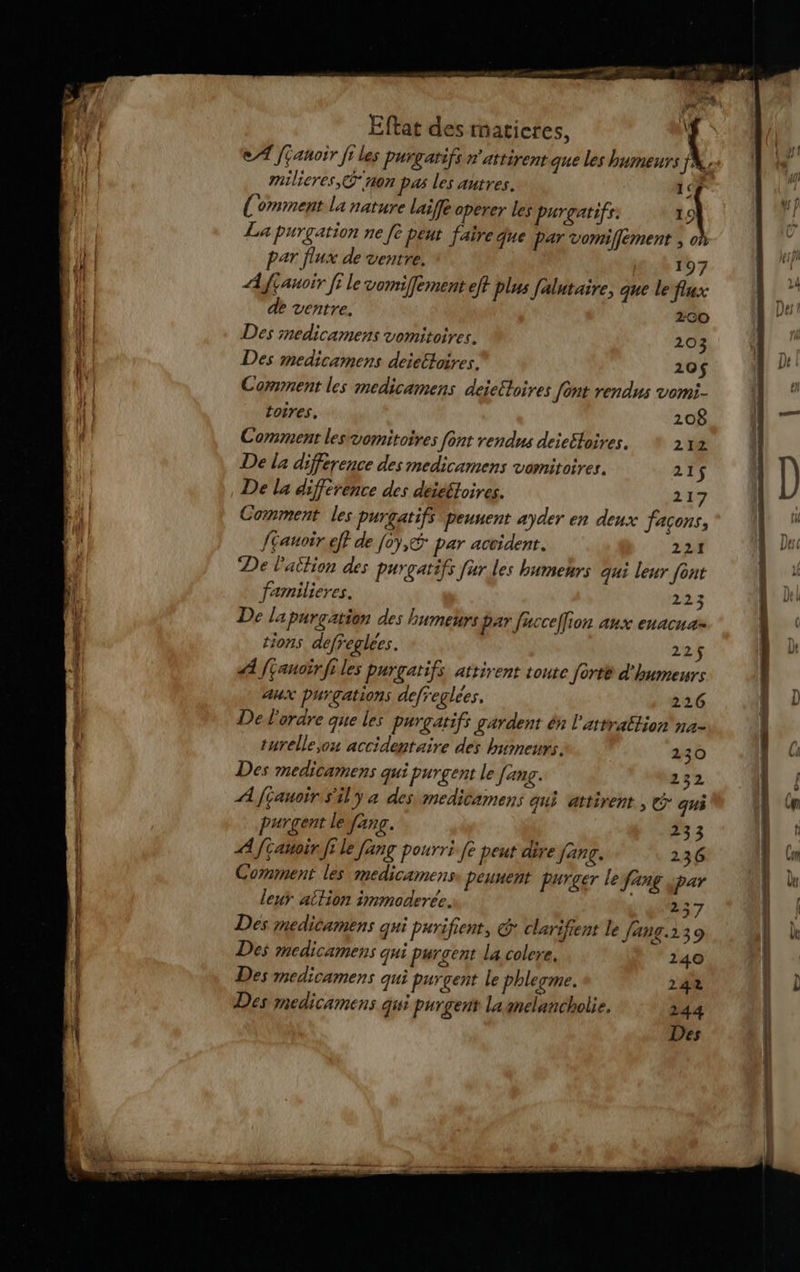 Eſtat des matieres,
A ſçauoir ſi les purgatifs n'attirent que les humeurs fa-
milieres, & non pas les autres.
Comment la nature laiſſe operer les purgatifs.
La purgation ne ſe peut faire que par vomiſſement, ou
par flux de ventre. 197
A ſçauoir ſi le vomiſſement eſt plus ſalutaire, que le flux
de ventre. 200
Des medicamens vomitoires. 203
Des medicamens deiectoires. 205
Comment les medicamens deiectoires ſont rendus vomi-
toires. 208
Comment les vomitoires ſont rendus deiectoires. 212
De la difference des medicamens vomitoires. 215
De la difference des deiectoires. 217
Comment les purgatifs peuuent ayder en deux façons,
ſçauoir eſt de ſoy, & par accident. 221
De l'action des purgatifs ſur les humeurs qui leur ſont
familieres. 223
De la purgation des humeurs par ſucceſſion aux euacua-
tions deſreglées. 225
A ſçauoir ſi les purgatifs attirent toute ſorte d'humeurs
aux purgations deſreglées. 226
De l'ordre que les purgatifs gardent en l'attraction na-
turelle, ou accidentaire des humeurs. 230
Des medicamens qui purgent le ſang. 232
A ſçauoir s'il y a des medicamens qui attirent, & qui
purgent le ſang. 233
A ſçauoir ſi le ſang pourri ſe peut dire ſang. 236
Comment les medicamens peuuent purger le ſang par
leur action immoderée. 237
Des medicamens qui purifient, & clarifient le ſang. 239
Des medicamens qui purgent la colere. 240
Des medicamens qui purgent le phlegme. 242
Des medicamens qui purgent la melancholie. 244
Des